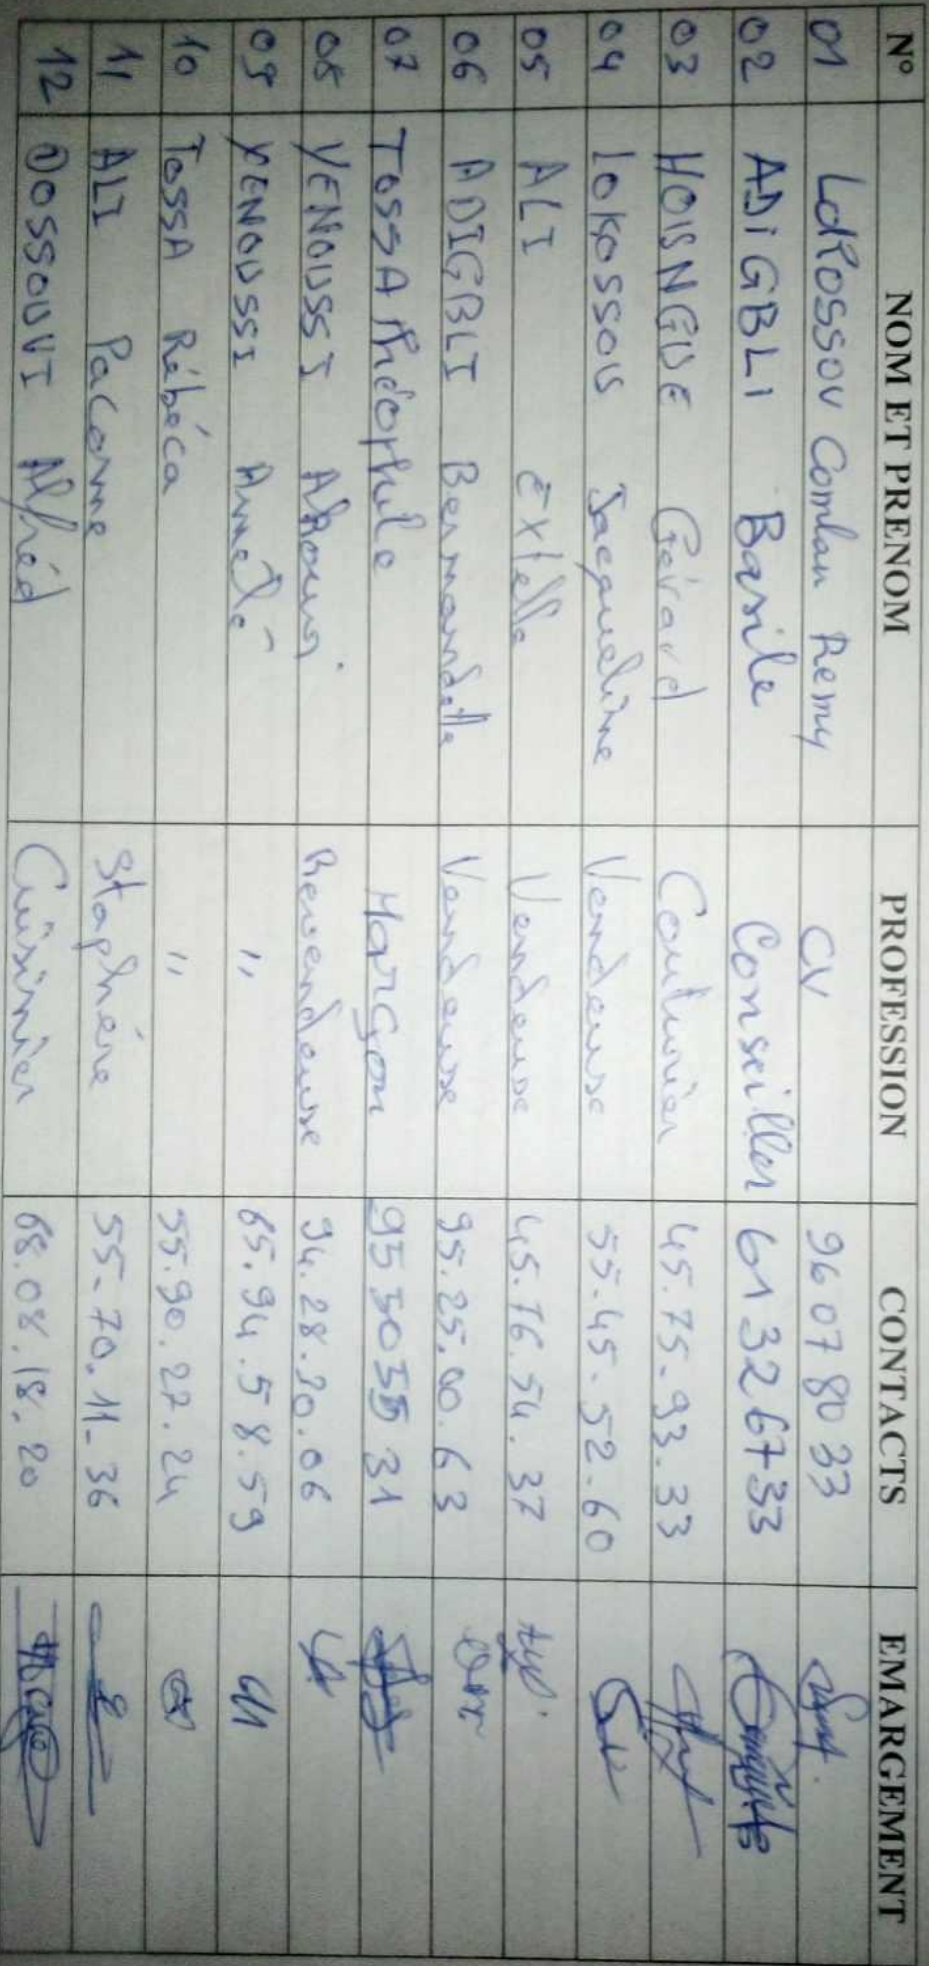 N° NOM ET PRENOM PROFESSION CONTACTS EMARGEMENT
01 LoKossou Comlan Remy CV 96 07 80 33
02 ADiGBLI Basile Conseiller 61 32 67 33
03 HOUSNGUE Gérard Couturier 45.75.93.33
04 lOKOSSOU Jacqueline Vendeuse 55.45.52.60
05 ALI Extelle Vendeuse 45.16.54.37
06 ADIGBLI Bernandette Vendeuse 95.25.00.63
07 TOSSA théophile Marçon 95 50 35 31
08 YENOUSSI Vendeuse 94.28.20.06
09 YENOUSSI " 65.94.58.59
10 TOSSA Rébéca " 55.90.27.24
11 ALI Pacome Stagière 55-70.11-36
12 DOSSOUVI Alfréd Cuisinier 68.08.18.20